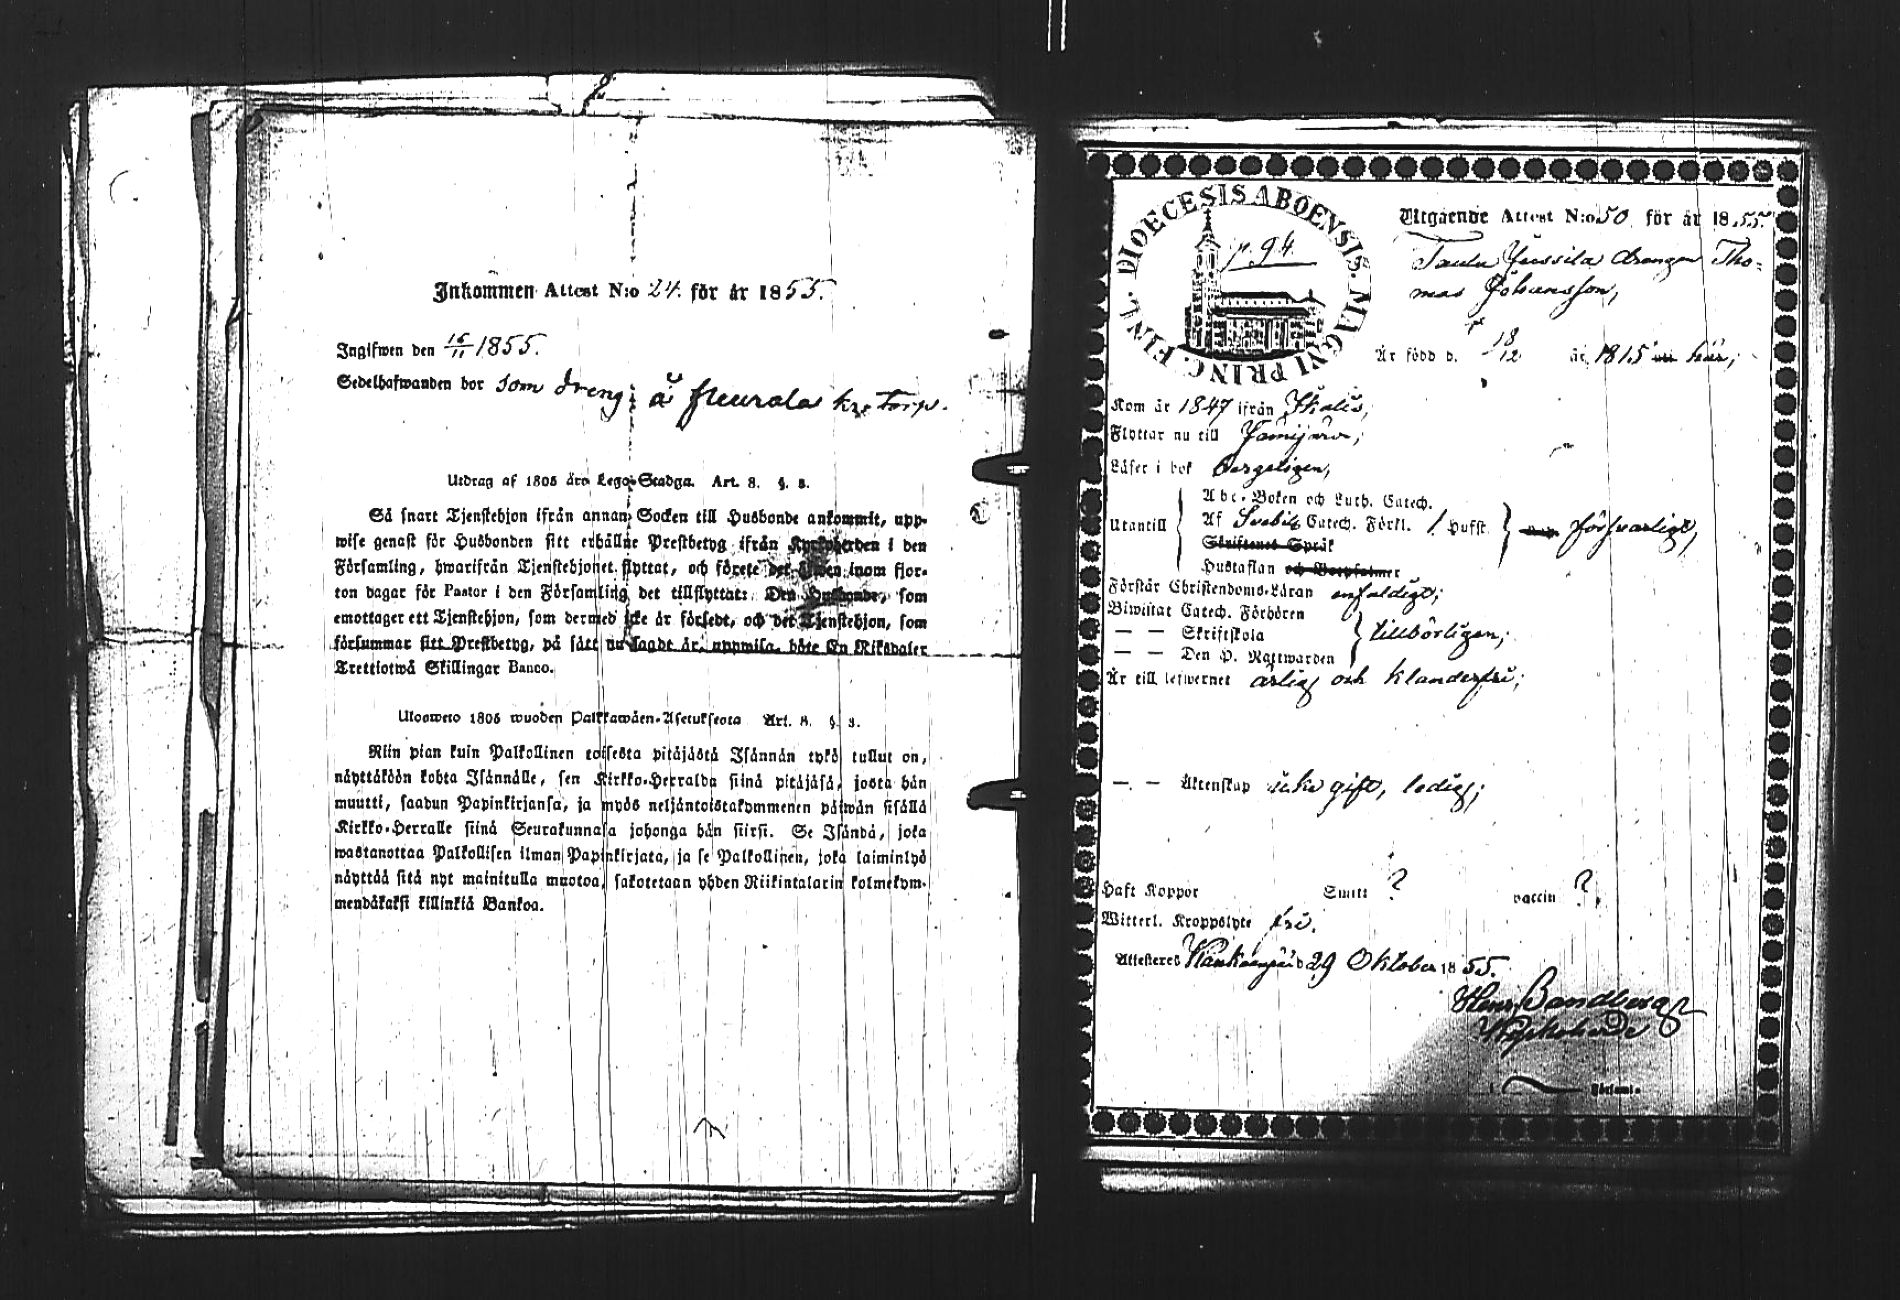 Inkommen Attest N:o 24. för år 1855.
Ingifwen den 16/11 1855.
Sedelhafwanden bor som dreng å krs torp.
Utdrag af 1805 års Lego-Stadga. Art. 8. §. 3.
Så snart Tjenstehjon ifrån annan Socken till Husbonde ankommit, upp-
wise genast för Husbonden sitt erhållne Prestbetyg ifrån Kyrkoherden i den
Församling, hwarifrån Tjenstehjonet flyttat, och förete det äfwen inom fjor-
ton dagar för Pastor i den Församling det tillflyttat: Den Husbonde, som
emottager ett Tjenstehjon, som dermed icke är försedt, och det Tjenstehjon, som
försummar sitt Prestbetyg, på sätt nu sagdt är, uppwisa, böte En Riksdaler
Trettiotwå Skillingar Banco.
Utosweto 1805 wuoden Palkkawäen-Asetuksesta Art. 8. §. 3.
Niin pian kuin Palkollinen toisesta pitäjästä Isännän tykö tullut on,
näyttäköön kohta Isännälle, sen Kirkko-Herralda siinä pitäjäsä, josta hän
muutti, saadun Papinkirjansa, ja myös neljäntoistakymmenen päiwän sisällä
Kirkko-Herralle siinä Seurakunnasa johonga hän siirsi. Se Isändä, joka
wastanottaa Palkollisen ilman Papinkirjata, ja se Palkollinen, joka laiminlyö
näyttää sitä nyt mainitulla muotoa, sakotetaan yhden Riikintalarin kolmekym-
mendäkaksi killinkiä Bankoa.
DIOECESIS ABOENSIS. MAGNI PRINC. FINL.
p. 94.
Utgående Attest N:o 50 för år 1855.
Jussila drengen Tho-
mas Johansson,
Är född d. 18/12 år 1815 här;
Kom år 1847 ifrån Ikalis,
Flyttar nu till Jämijärvi;
Läser i bok
Utantill
Abc-Boken och Luth. Catech.
Af Svebilii Catech. Förkl. 1 Hufst.
Skriftenes Språk
Hustaflan och Botpsalmer
försvarligt,
Förstår Christendoms-Läran enfaldigt;
Biwistat Catech. Förhören
— — Skriftskola
— — Den H. Nattwarden
tillbörligen;
Är till lefwernet ärlig och klanderfri;
— — Äktenskap icke gift, ledig;
Haft Koppor Smitt ? vaccin ?
Witterl. Kroppslyte fri.
Attesteres Kankaanpää d 29 Oktober 1855.
Sandberg
Kyrkoherde
i Församl.